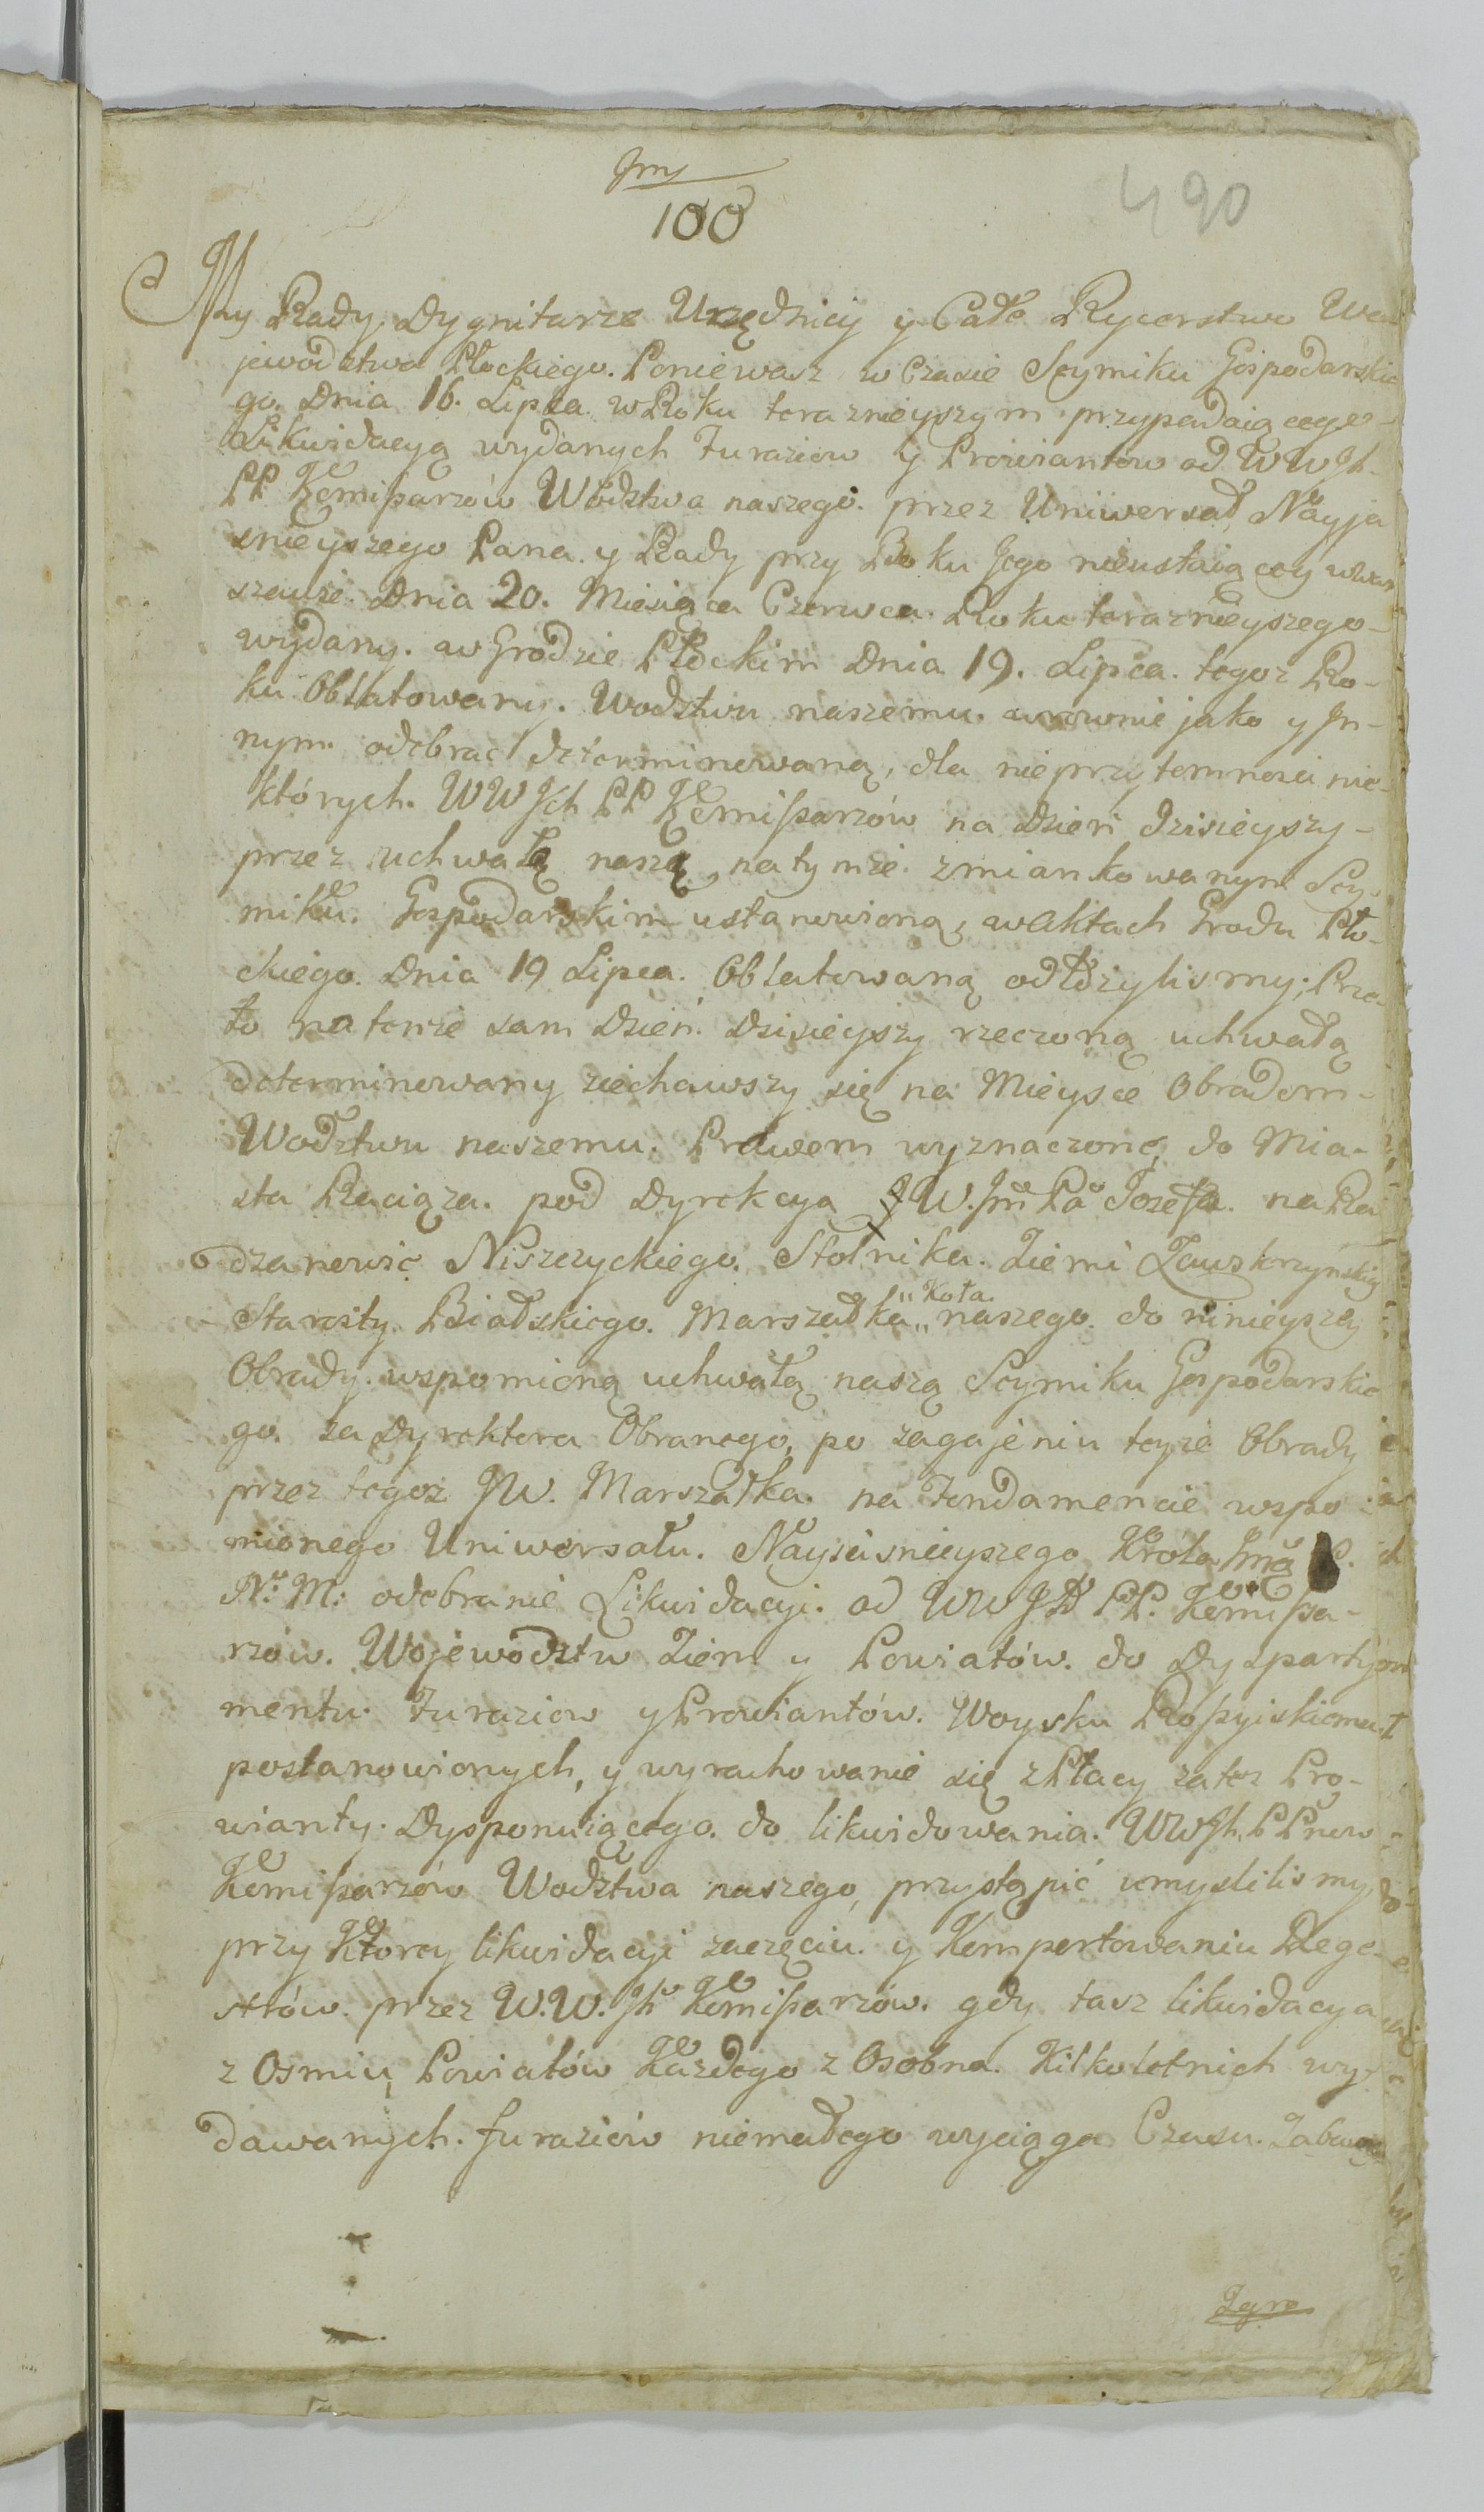 100
490
My Rady, Dygnitarze Urzędnicy y Całe Rycerstwo Wo-
jewodztwa Płockiego. Poniewasz w Czasie Seymiku Gospodarskie
go. Dnia 16. Lipca. w Roku teraznieyszym przypadaiącego-
Likwidacyą wydanych Furaziow y Prowiantow od WWJch
PP Komißarzów Wództwa naszego. przez Uniwersał Nayja
snieyszego Pana y Rady przy Boku Jego nieustaiącey w War
szawie. Dnia 20. Miesiąca Czerwca. Roku teraznieyszego-
wydany. a w Grodzie Płockim Dnia 19. Lipca. tegoz Ro-
ku Oblatowany. Wodztwu naszemu. a rownie jako y In-
nym. odebrac determinowaną, dla nieprzytomnosci nie-
których. WWJch PP Komißarzów na Dzien dzisieyszy-
przez uchwałę naszą, na tymże zmiankowanym Sey-
miku. Gospodarskim ustanowioną, w Aktach Grodu Pło-
ckiego. Dnia 19 Lipca. Oblatowaną odłozylismy; Prze-
to na tenze sam Dzień. Dzisieyszy rzeczoną uchwałą
determinowany ziechawszy się na Mieysce Obradom-
Wodztwu naszemu. Prawem wyznaczone, do Mia-
sta Raciąza. pod Dyrekcya JW. Jm Pa Jozefa. na Ra
dzanowie Niszczyckiego. Stolnika. Ziemi Zawskrzyńskiey
Starosty. Bialskiego. Marszałka „Koła„ naszego. do ninieyszey
Obrady. wspomioną uchwałą naszą Seymiku Gospodarskie
go. za Dyrektora Obranego, po zagajeniu teyze Obrady
przez tegoz JW. Marszałka. na Fondamencie wspo-
mionego Uniwersału. Nayiasnieyszego Krola Jmci P.
N. M: odebranie Likwidacyi. od WWJch PP. Komißa-
rzów. Wojewodztw Ziem y Powiatów. do Dyzpartyi
mentu. Furaziow y Prowiantów. Woysku Roßyiskiemu
postanowionych, y wyrachowanie się z Płacy za tez Pro-
wianty. Dysponuiącego. do likwidowania. WWJch PPnow
Komißarzów Wodztwa naszego, przystąpić umyslilismy,
przy Ktorey likwidacyi zaczęciu. y Komportowaniu Rege-
strów. przez W.W. Jch Komißarzów. gdy tasz likwidacya
z Osmiu Powiatów Kazdego z Osobna. Kilkoletnich wy-
dawanych. furaziów niemałego wyciąga Czasu.